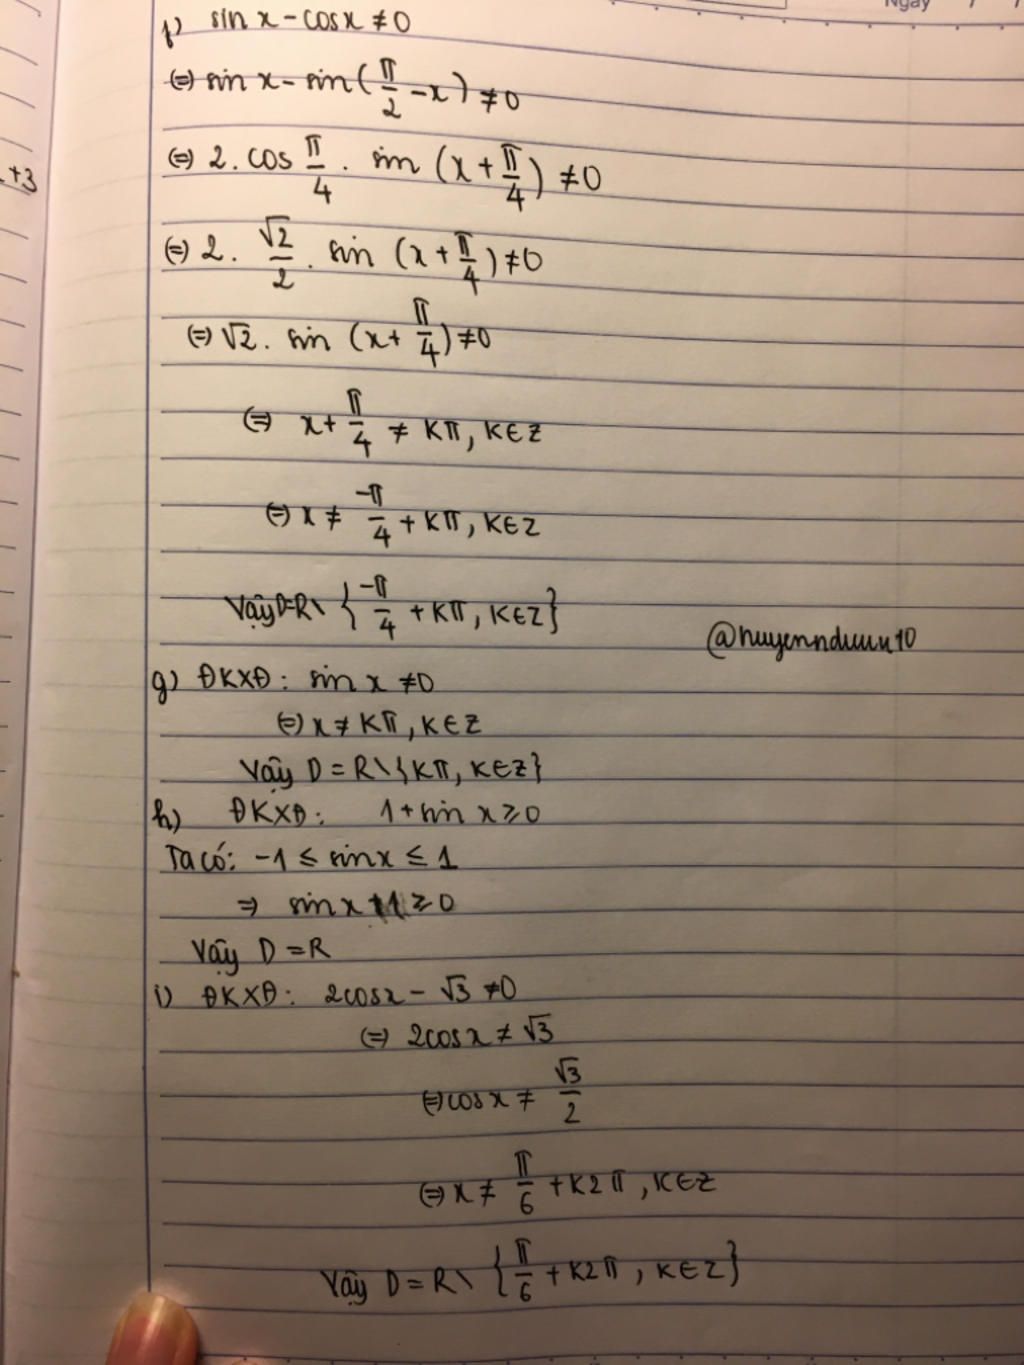 Ngày / /
f) sin x - cosx ≠ 0
⇔ sin x - sin(π/2 - x) ≠ 0
+3
⇔ 2. cos π/4 . sin (x + π/4) ≠ 0
⇔ 2. √2/2 . sin (x + π/4) ≠ 0
⇔ √2. sin (x + π/4) ≠ 0
⇔ x + π/4 ≠ Kπ, K∈Z
⇔ x ≠ -π/4 + Kπ, K∈Z
Vậy D=R\ {-π/4 + Kπ, K∈Z}
@huyennduuu10
g) ĐKXĐ: sin x ≠ 0
⇔ x ≠ Kπ, K∈Z
Vậy D = R\{Kπ, K∈Z}
h) ĐKXĐ: 1 + sin x ≥ 0
Ta có: -1 ≤ sinx ≤ 1
⇒ sinx + 1 ≥ 0
Vậy D = R
i) ĐKXĐ: 2cosx - √3 ≠ 0
⇔ 2cosx ≠ √3
⇔ cosx ≠ √3/2
⇔ x ≠ π/6 + K2π, K∈Z
Vậy D = R\ {π/6 + K2π, K∈Z}